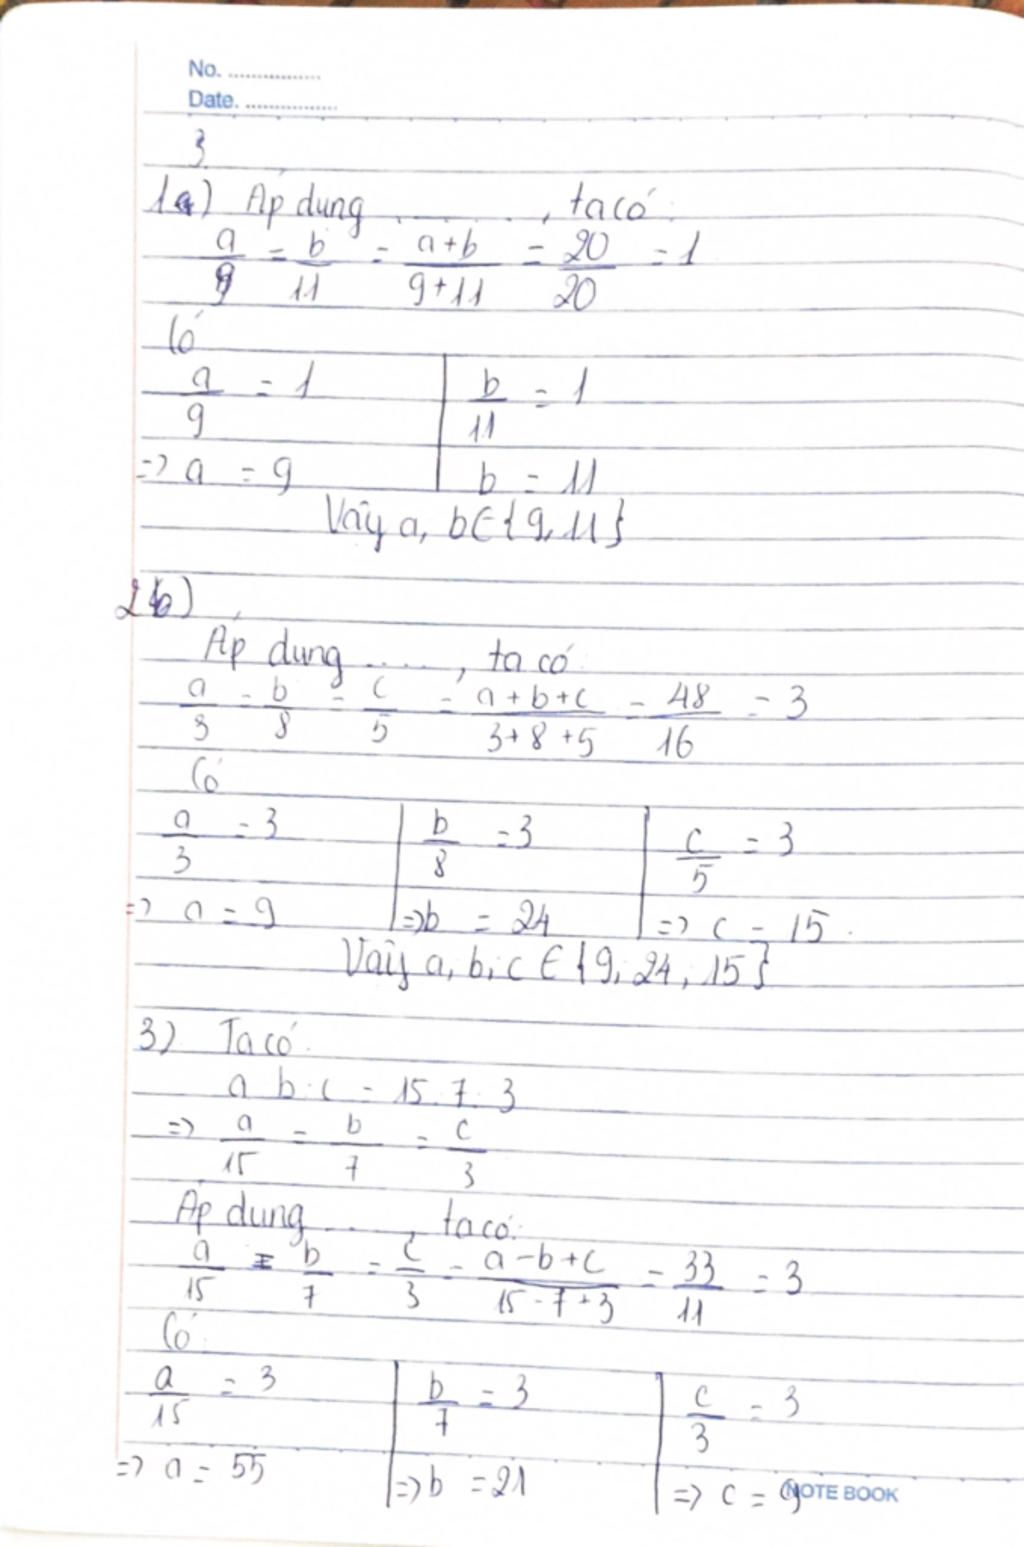 No. ...............
Date. ...............
3
1a) Áp dụng ........., ta có:
a/9 = b/11 = a+b/9+11 = 20/20 = 1
Có
a/9 = 1 | b/11 = 1
=> a = 9 | b = 11
Vậy a, b ∈ {9, 11}
2b)
Áp dụng ....., ta có
a/3 = b/8 = c/5 = a+b+c/3+8+5 = 48/16 = 3
Có
a/3 = 3 | b/8 = 3 | c/5 = 3
=> a = 9 | => b = 24 | => c = 15.
Vậy a, b, c ∈ {9, 24, 15}
3) Ta có:
a : b : c = 15 : 7 : 3
=> a/15 = b/7 = c/3
Áp dụng ......, ta có:
a/15 = b/7 = c/3 = a-b+c/15-7+3 = 33/11 = 3
Có:
a/15 = 3 | b/7 = 3 | c/3 = 3
=> a = 55 | => b = 21 | => c = 9
NOTE BOOK